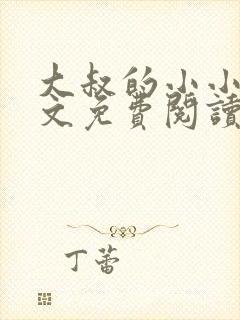 大叔的小小
文免費閱讀
丁蕾